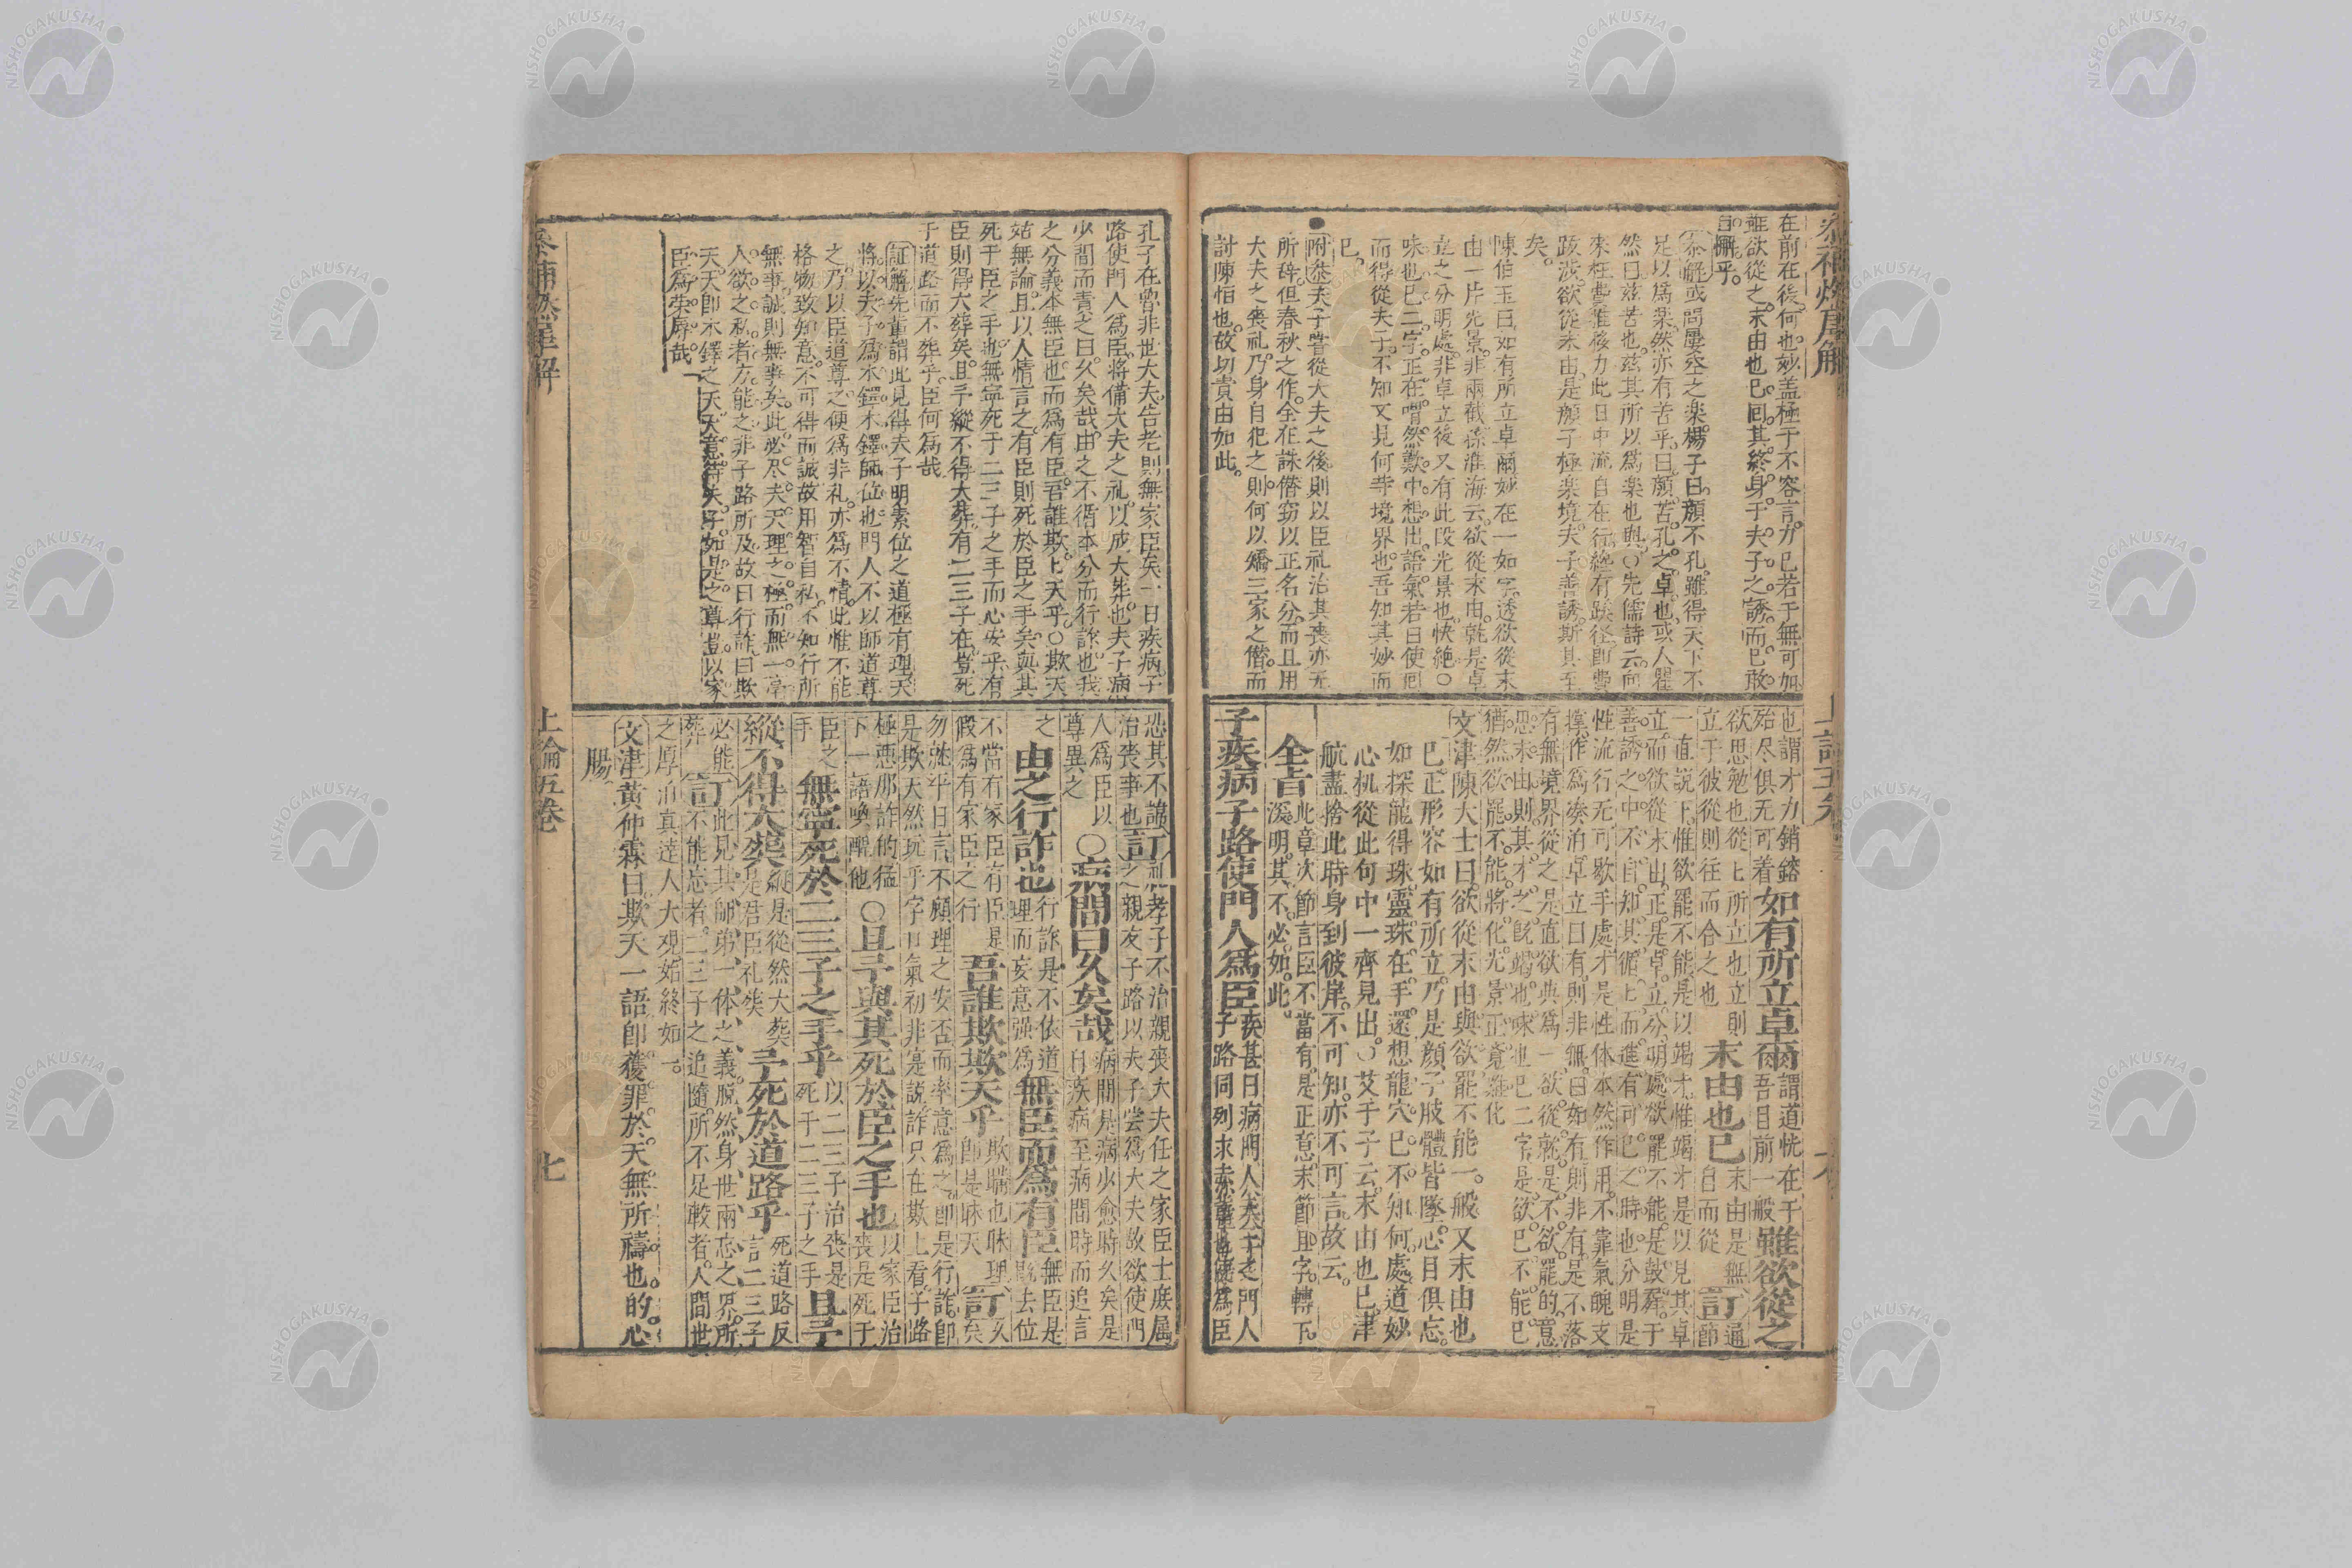 在前在後何也妙盖極于不容言力已若于無可如
雖欲從之末由也已回其終身于夫子之誘而已敢
自懈乎
參解或問屢空之楽楊子曰顔不孔雖得天下不
足以爲楽然亦有苦乎曰顔苦孔之卓也或人瞿
然曰兹苦也兹其所以爲楽也與○先儒詩云向
來枉費推後力此日中流自在行終有蹊徑即費
跋涉欲從末由是顔子極楽境夫子善誘斯其至
矣
陳伯玉曰如有所立卓爾妙在一如字透欲從末
由一片光景非兩截孫淮海云欲從末由就是卓
立之分明處非卓立後又有此段光景也快絶○
味也已二字正在喟然歎中想出語氣若曰使囘
而得從夫子不知又見何等境界也吾知其妙而
已
附參夫子嘗從大夫之後則以臣礼治其喪亦无
所辞但春秋之作全在誅僣窃以正名分而且用
大夫之喪礼乃身自犯之則何以矯三家之僣而
討陳恒也故切責由如此
也謂才力銷鎔
殆尽俱无可着
如有所立卓爾
謂道恍在于
吾目前一般
雖欲從之
欲思勉也從上所立也立則
立于彼從則往而合之也
末由也已
末由是無
自而從
訂
通
節
一直説下惟欲罷不能是以竭才惟竭才是以見其卓
立而欲從末由正是卓立分明處欲罷不能是鼓舞于
善誘之中不自知其循上而進有可已之時也分明是
性流行无可歇手處才是性体本然作用不靠氣魄支
撑作爲湊泊卓立曰有則非無曰如有則非有是不落
有無境界從之是直欲與爲一欲從就是不欲罷的意
思末由則其才之旣竭也味也已二字是欲已不能已
猶然欲罷不能將化光景正竟難化
文津陳大士曰欲從末由與欲罷不能一般又末由也
已正形容如有所立乃是顔子肢體皆墜心目俱忘
如探龍得珠靈珠在手還想龍穴已不知何處道妙
心机從此句中一齊見出○艾千子云末由也已津
航盡捨此時身到彼岸不可知亦不可言故云
全旨
此章次節言臣不當有是正意末節且字轉下
溪明其不必如此
子疾病子路使門人爲臣
疾甚曰病門人夫子之門人
孔子在魯非世大夫告老則無家臣矣一日疾病子
路使門人爲臣將備大夫之礼以成大葬也夫子病
少間而責之曰久矣哉由之不循本分而行詐也我
之分義本無臣也而爲有臣吾誰欺上天乎○欺天
姑無論且以人情言之有臣則死於臣之手矣與其
死于臣之手也無寧死于二三子之手而心安乎有
臣則得大葬矣且予縱不得大葬有二三子在豈死
于道路而不葬乎臣何爲哉
証解先輩謂此見得夫子明素位之道極有理天
將以夫子爲木鐸木鐸師位也門人不以師道尊
之乃以臣道尊之便爲非礼亦爲不情此惟不能
格物致知意不可得而誠故用智自私不知行所
無事誠則無事矣此必尽夫天理之極而無一毫
人欲之私者方能之非子路所及故曰行詐曰欺
天天卽木鐸之天天意待夫子如是之尊豈以家
臣爲荣辱哉
恐其不諳
治喪事也
訂
礼孝子不治親喪大夫任之家臣士庶属
之親友子路以夫子嘗爲大夫故欲使門
人爲臣以
尊異之
○病間曰久矣哉
病間是病少愈時久矣是
自疾病至病間時而追言
之
由之行詐也
行詐是不依道
理而妄意强爲
無臣而爲有臣
無臣是
旣去位
不當有家臣有臣是
假爲有家臣之行
吾誰欺欺天乎
欺瞞也昧理
卽是昧天
訂
久
矣
勿就平日言不顧理之安否而率意爲之卽是行詐卽
是欺天然玩乎字口氣初非寔説詐只在欺上看子路
極惡那詐的猛
下一語喚醒他
○且予與其死於臣之手也
以家臣治
喪是死于
臣之
手
無寧死於二三子之手乎
以二三子治喪是
死于二三子之手
且予
縱不得大葬
縱是從然大葬
是君臣礼葬
予死於道路乎
死道路反
言二三子
必能
葬
訂
此見其師弟一体之義脱然身世兩忘之界所
不能忘者二三子之追隨所不足較者人間世
之厚泊真達人大观始終如一
文津黄仲霖曰欺天一語卽獲罪於天無所禱也的心
腸
上論五卷
七